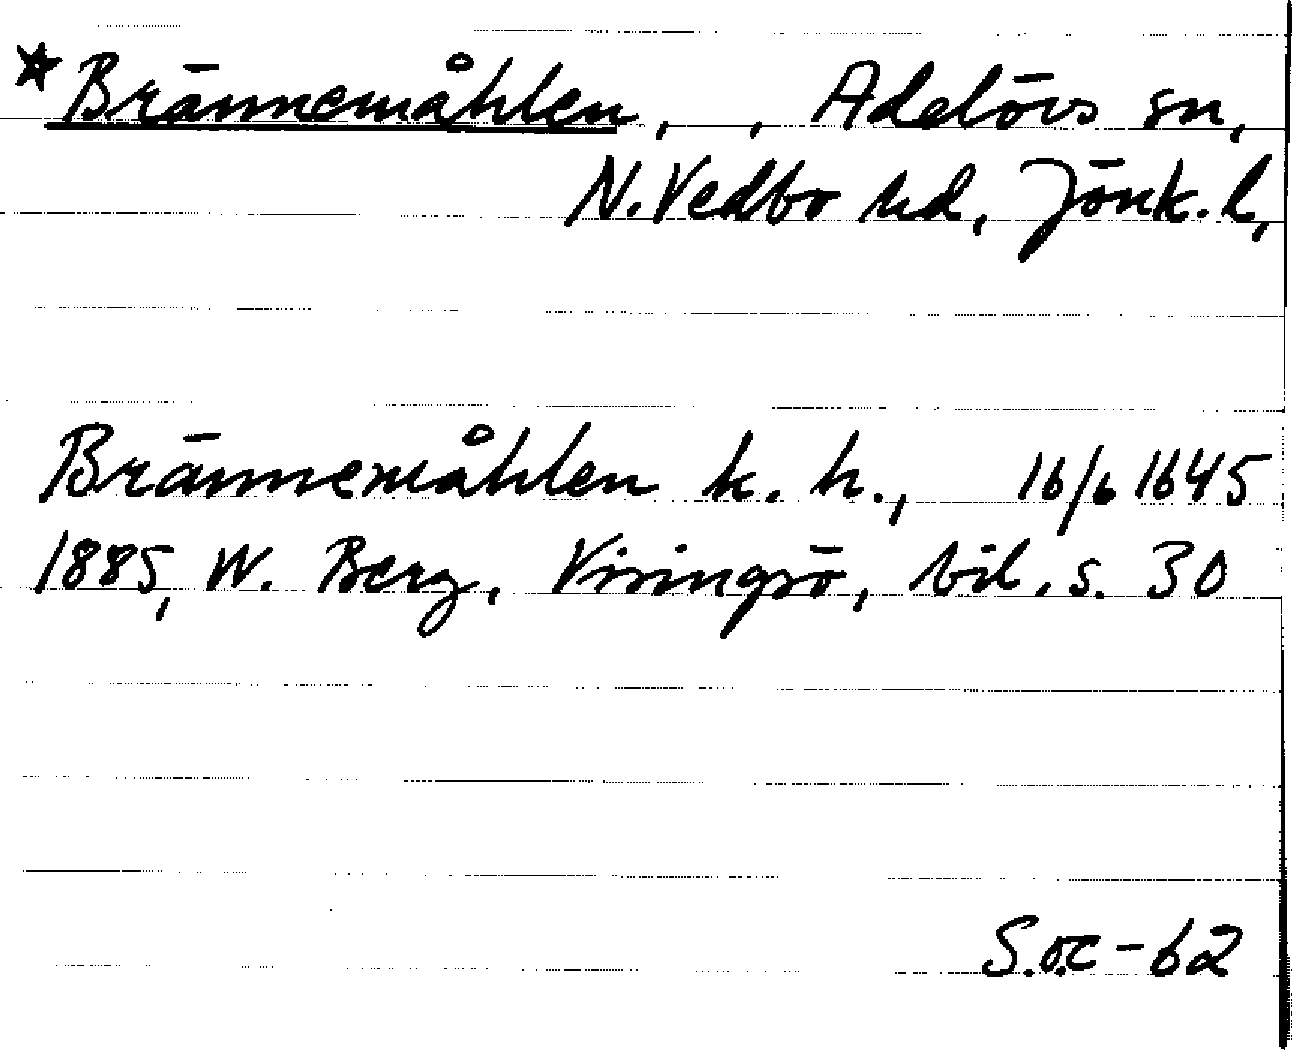 *Brännemåhlen, , Adelövs sn,
N. Vedbo hd, Jönk. l,
Brännemåhlen k. h., 16/6 1645
1885, W. Berg, Visingsö, bil. s. 30
S.o.c-62